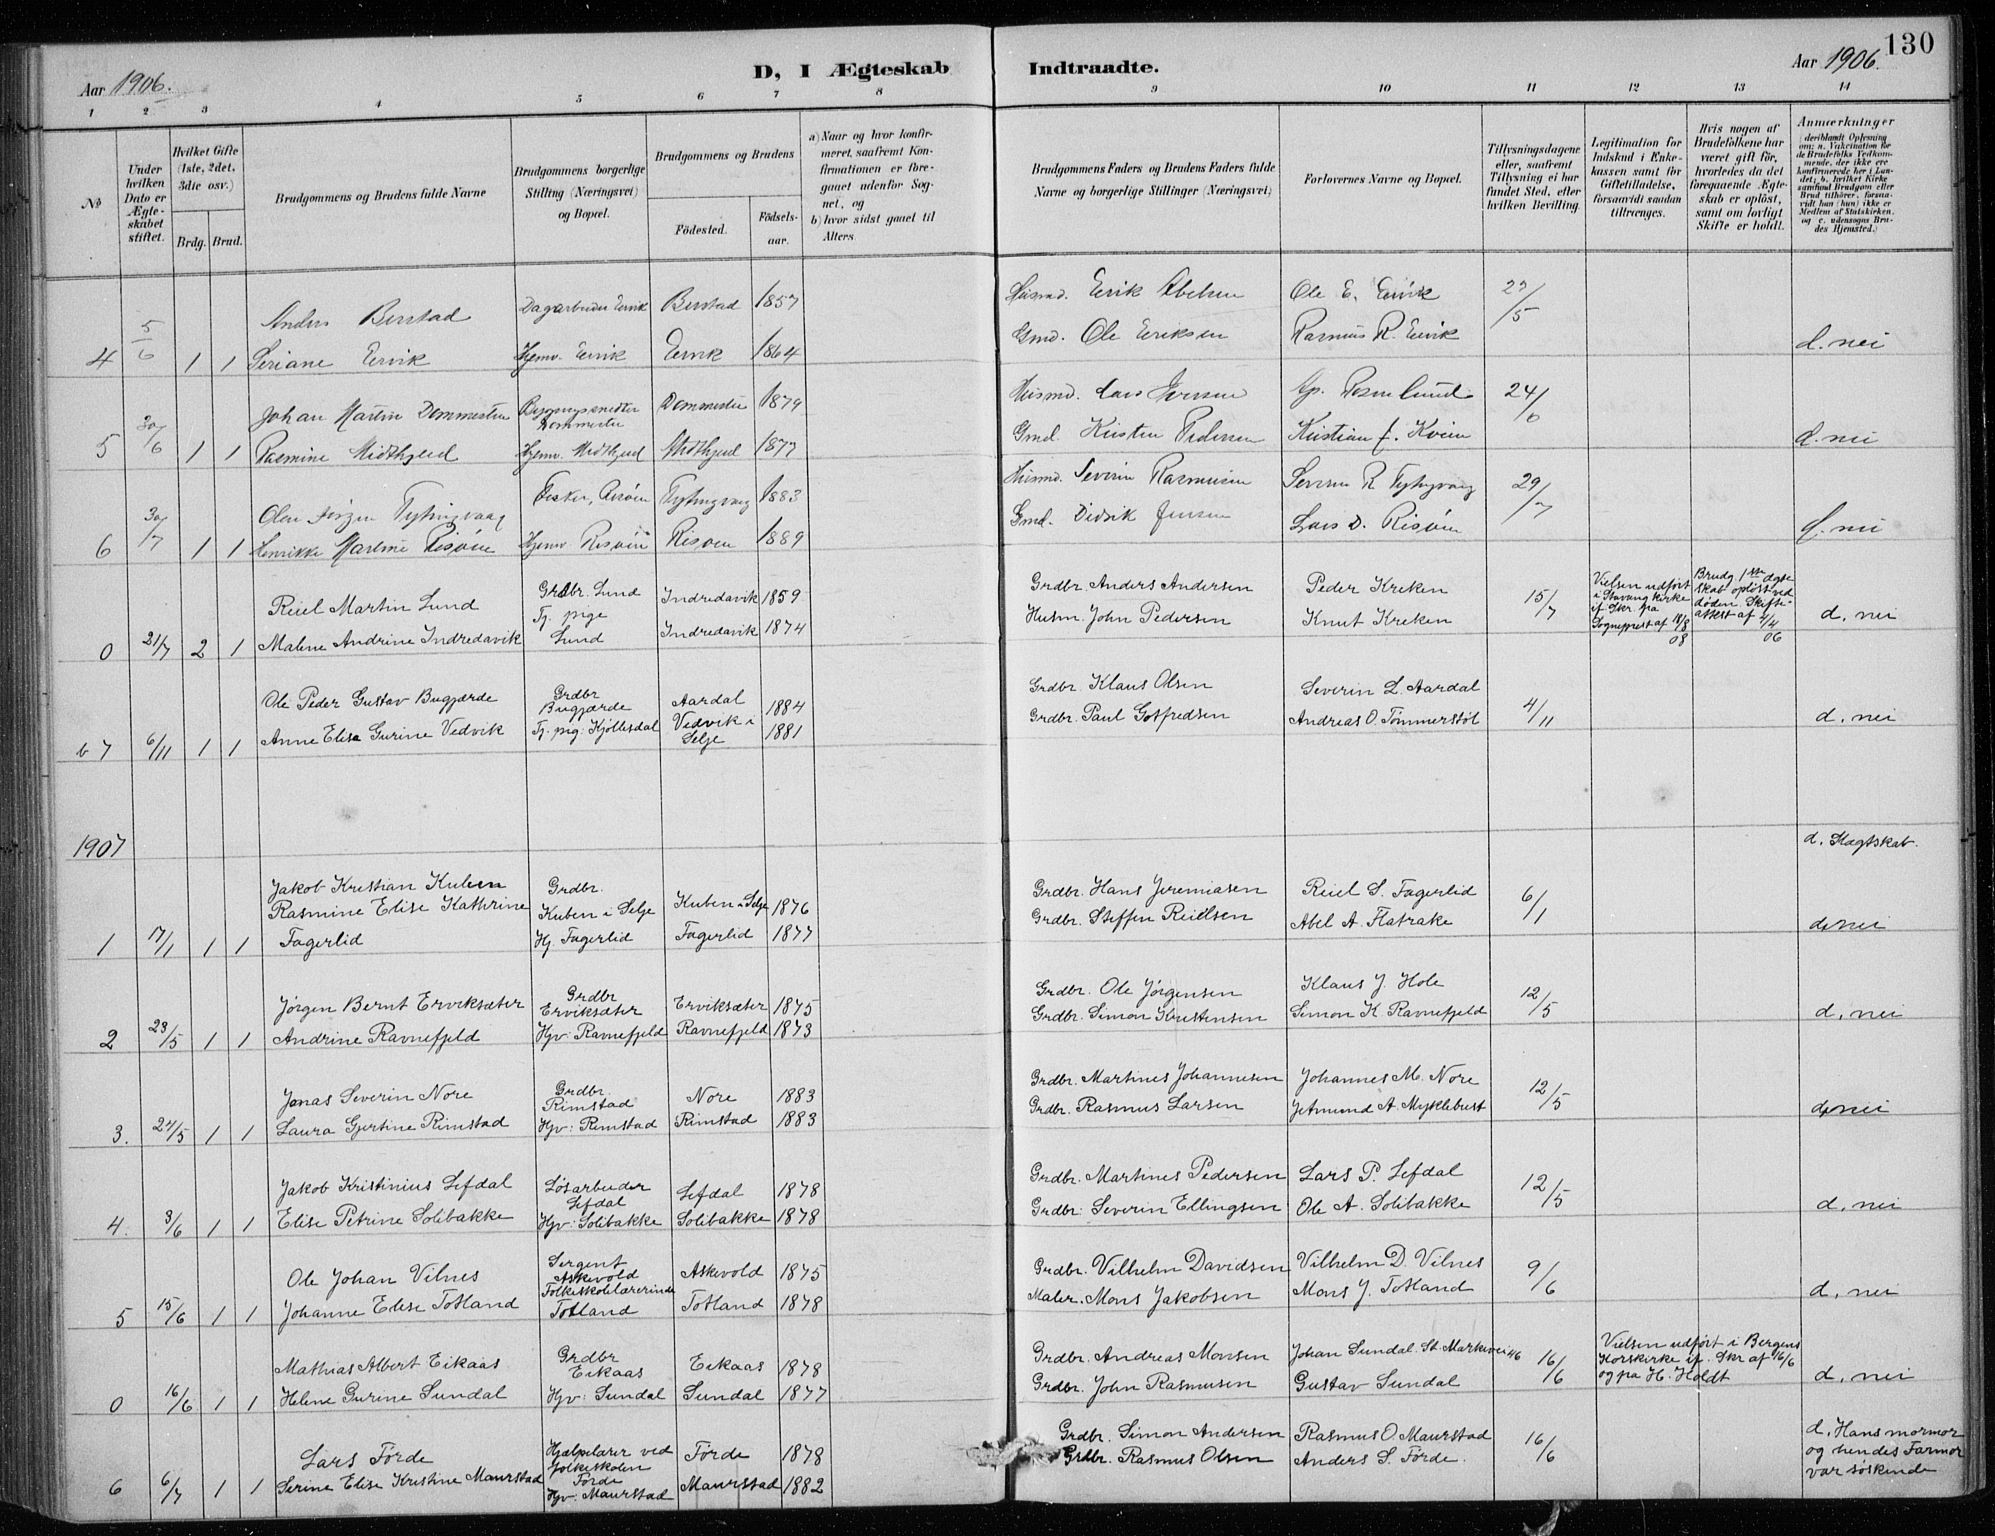 130
Aar 1906.
D, I Ægteskab Indtraadte.
Aar 1906.
1 2 3 4 5 6 7 8 9 10 11 12 13 14
No
Under hvilken Dato er Ægteskabet stiftet.
Hvilket Gifte (1ste, 2det, 3die osv.)
Brdg. Brud.
Brudgommens og Brudens fulde Navne
Brudgommens borgerlige Stilling (Næringsvei) og Bopæl.
Brudgommens og Brudens
Födested.
Födselsaar.
a) Naar og hvor konfirmeret, saafremt Konfirmationen er foregaaet udenfor Sognet, og
b) hvor sidst gaaet til Alters
Brudgommens Faders og Brudens Faders fulde Navne og borgerlige Stillinger (Næringsvei)
Forlovernes Navne og Bopæl.
Tillysningsdagene eller, saafremt Tillysning ei har fundet Sted, efter hvilken Bevilling.
Legitimation for Indskud i Enkekassen samt for Giftetilladelse, forsaavidt saadan tiltrænges.
Hvis nogen af Brudefolkene har været gift før, hvorledes da det foregaaende Ægteskab er opløst, samt om lovligt Skifte er holdt.
Anmærkninger (deriblandt Oplysning om: a. Vakcination for de Brudefolks Vedkommende, der ikke ere konfirmerede her i Landet; b. hvilket Kirkesamfund Brudgom eller Brud tilhører, forsaavidt han (hun) ikke er Medlem af Statskirken, og c. udensogns Brudes Hjemsted.)
Anders Berstad Dagarbeider Ervik Berstad 1857 Husmd. Erik Abelsen Ole E. Ervik 27/5
4 5/6 1 1 Seriane Ervik Hjemv. Ervik Ervik 1864 Gmd. Ole Eriksen Rasmus R. Ervik d. nei
Johan Martin Dommersten Bygningssnedker Dommersten 1879 Husmd. Lars Jensen 24/6
5 30/6 1 1 Rasmine Midthjeld Hjemv. Midthjeld Midthjeld 1877 Gmd. Kristen Pedersen Kristian J. d. nei
Olai Jørgen Tytingvaag Fisker, Risöen Tytingvaag 1883 Husmd. Severin Rasmusen Severin R Tytingvaag 29/7
6 30/7 1 1 Henrikke Martine Risöen Hjemv Risöen Risöen 1889 Gmd. Didrik Jensen Lars D. Risöen d. nei
Reiel Martin Lund Grdbr. Lund Indredavik 1859 Grdbr. Anders Andersen Peder Kreken 15/7 Vielsen udført i Stavang kirke if Skr. fra Sogneprest af 11/8 08 Brudg. 1ste Ægteskab opløst ved døden Skifteattest af 2/4 06 d. nei
0 21/7 2 1 Malene Andrine Indredavik Tj. pige Lund Indredavik 1874 Husm. John Pedersen Knut Kreken
Ole Peder Gustav Bugjærde Grdbr Bugjærde Aardal 1884 Grdbr. Klaus Olsen Severin L. Aardal 4/11 d. nei
67 6/11 1 1 Anne Elise Gurine Vedvik Tj. pig: Kjøllesdal Vedvik i Selje 1881 Grdbr. Paul Gotfredsen Andreas O. Tömmerstöl
1907
d. Slægtskab.
Jakob Kristian Kuben Grdbr. Kuben i Selje Kuben i Selje 1876 Grdbr. Hans Jeremiasen Reiel S. Fagerlid 6/1
1 17/1 1 1 Rasmine Elise Kathrine Fagerlid Hj. Fagerlid Fagerlid 1877 Grdbr. Steffen Reielsen Abel A. Flatrake d. nei
Jørgen Bernt Erviksæter Grdbr Erviksæter Erviksæter 1875 Grdbr. Ole Jørgensen Klaus J. Hole 12/5
2 23/5 1 1 Andrine Ravnefjeld Hjv. Ravnefjeld Ravnefjeld 1873 Grdbr. Simon Kristensen Simon K Ravnefjeld d. nei
Jonas Severin Nore Grdbr. Rimstad Nore 1883 Grdbr. Martines Johannesen Johannes M. Nore 12/5
3. 24/5 1 1 Laura Gjertine Rimstad Hjv: Rimstad Rimstad 1883 Grdbr. Rasmus Larsen Jetmund A. Myklebust d. nei
Jakob Kristinius Lefdal Løsarbeider Lefdal Lefdal 1878 Grdbr. Martines Pedersen Lars P. Lefdal 12/5
4. 3/6 1 1 Elise Petrine Solibakke Hjv: Solibakke Solibakke 1878 Grdbr. Severin Ellingsen Ole A. Solibakke d. nei
Ole Johan Vilnes Sergent Askevold Askevold 1875 Grdbr. Vilhelm Davidsen Vilhelm D. Vilnes 9/6
5 15/6 1 1 Johanne Elise Totland Folkeskolelærerinde Totland Totland 1878 Maler. Mons Jakobsen Mons J. Totland d. nei
Mathias Albert Eikaas Grdbr Eikaas Eikaas 1878 Grdbr. Andreas Monsen Johan Sundal St. Markevei 46 16/6 Vielsen udført i Bergens Korskirke if. Skr af 16/6 og fra H. Holdt
0 16/6 1 1 Helene Gurine Sundal Hjv: Sundal Sundal 1877 Grdbr. John Rasmusen Gustav Sundal d. nei
Lars Förde Hjælpelærer ved Folkeskolen Förde Förde 1878 Grdbr. Simon Andersen Rasmus O. Maurstad 16/6 d. Hans mormor og hendes Farmor var søskende
6 6/7 1 1 Serine Elise Kristine Maurstad Hjv: Maurstad Maurstad 1882 Grdbr. Rasmus Olsen Anders S. Förde.